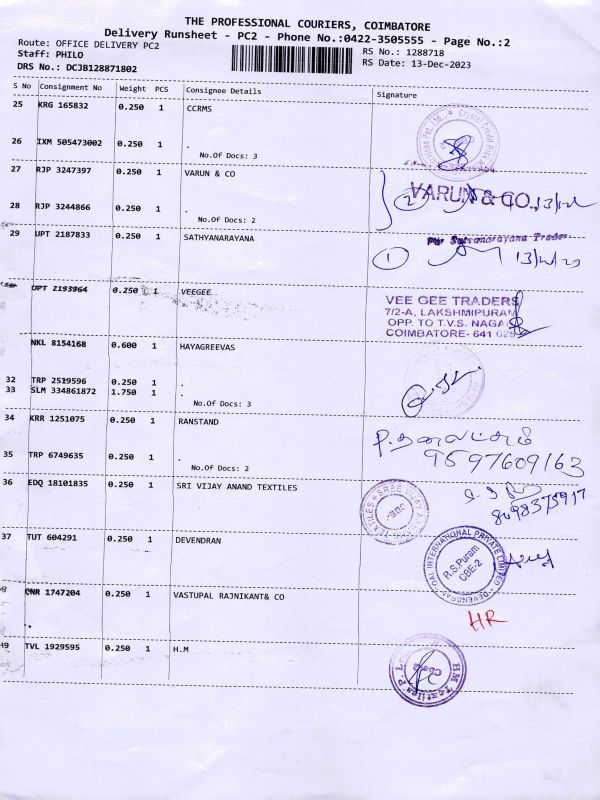 THE PROFESSIONAL COURIERS, COIMBATORE
Delivery Runsheet - PC2 - Phone No.:0422-3505555 - Page No.:2
Route: OFFICE DELIVERY PC2
Staff: PHILO
DRS No.: DCJB128871802
RS No.: 1288718
RS Date: 13-Dec-2023
S No Consignment No Weight PCS Consignee Details Signature
25 KRG 165832 0.250 1 CCRMS
26 IXM 505473002 0.250 1 .
No.Of Docs: 3
27 RJP 3247397 0.250 1 VARUN & CO
VARUN & CO.,
28 RJP 3244866 0.250 1 .
No.Of Docs: 2
2
29 UPT 2187833 0.250 1 SATHYANARAYANA
For Satyanarayana Traders
1
UPT 2193964 0.250 1 VEEGEE
VEE GEE TRADERS
7/2-A, LAKSHMIPURAM
OPP. TO T.V.S. NAGAR
COIMBATORE- 641 025
NKL 8154168 0.600 1 HAYAGREEVAS
32 TRP 2519596 0.250 1 .
33 SLM 334861872 1.750 1 .
No.Of Docs: 3
34 KRR 1251075 0.250 1 RANSTAND
9597609163
35 TRP 6749635 0.250 1 .
No.Of Docs: 2
36 EDQ 18101835 0.250 1 SRI VIJAY ANAND TEXTILES
37 TUT 604291 0.250 1 DEVENDRAN
DEVENDRAN COAL INTERNATIONAL PRIVATE LIMITED
R.S.Puram
CBE-2
CNR 1747204 0.250 1 VASTUPAL RAJNIKANT& CO
HR
TVL 1929595 0.250 1 H.M
HM Textiles P. L